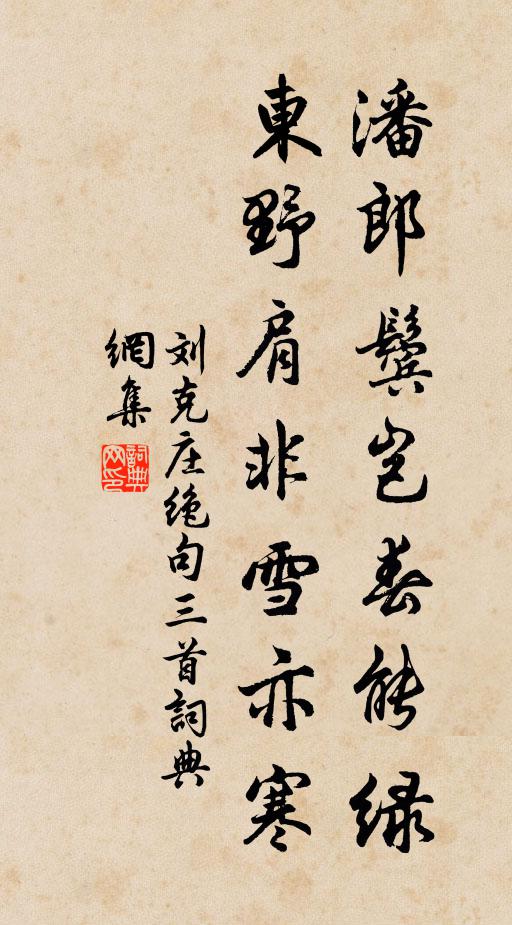 潘郎鬓岂春能绿
東野肩非雪亦寒
刘克庄绝句三首詞典
網集
詞典网印